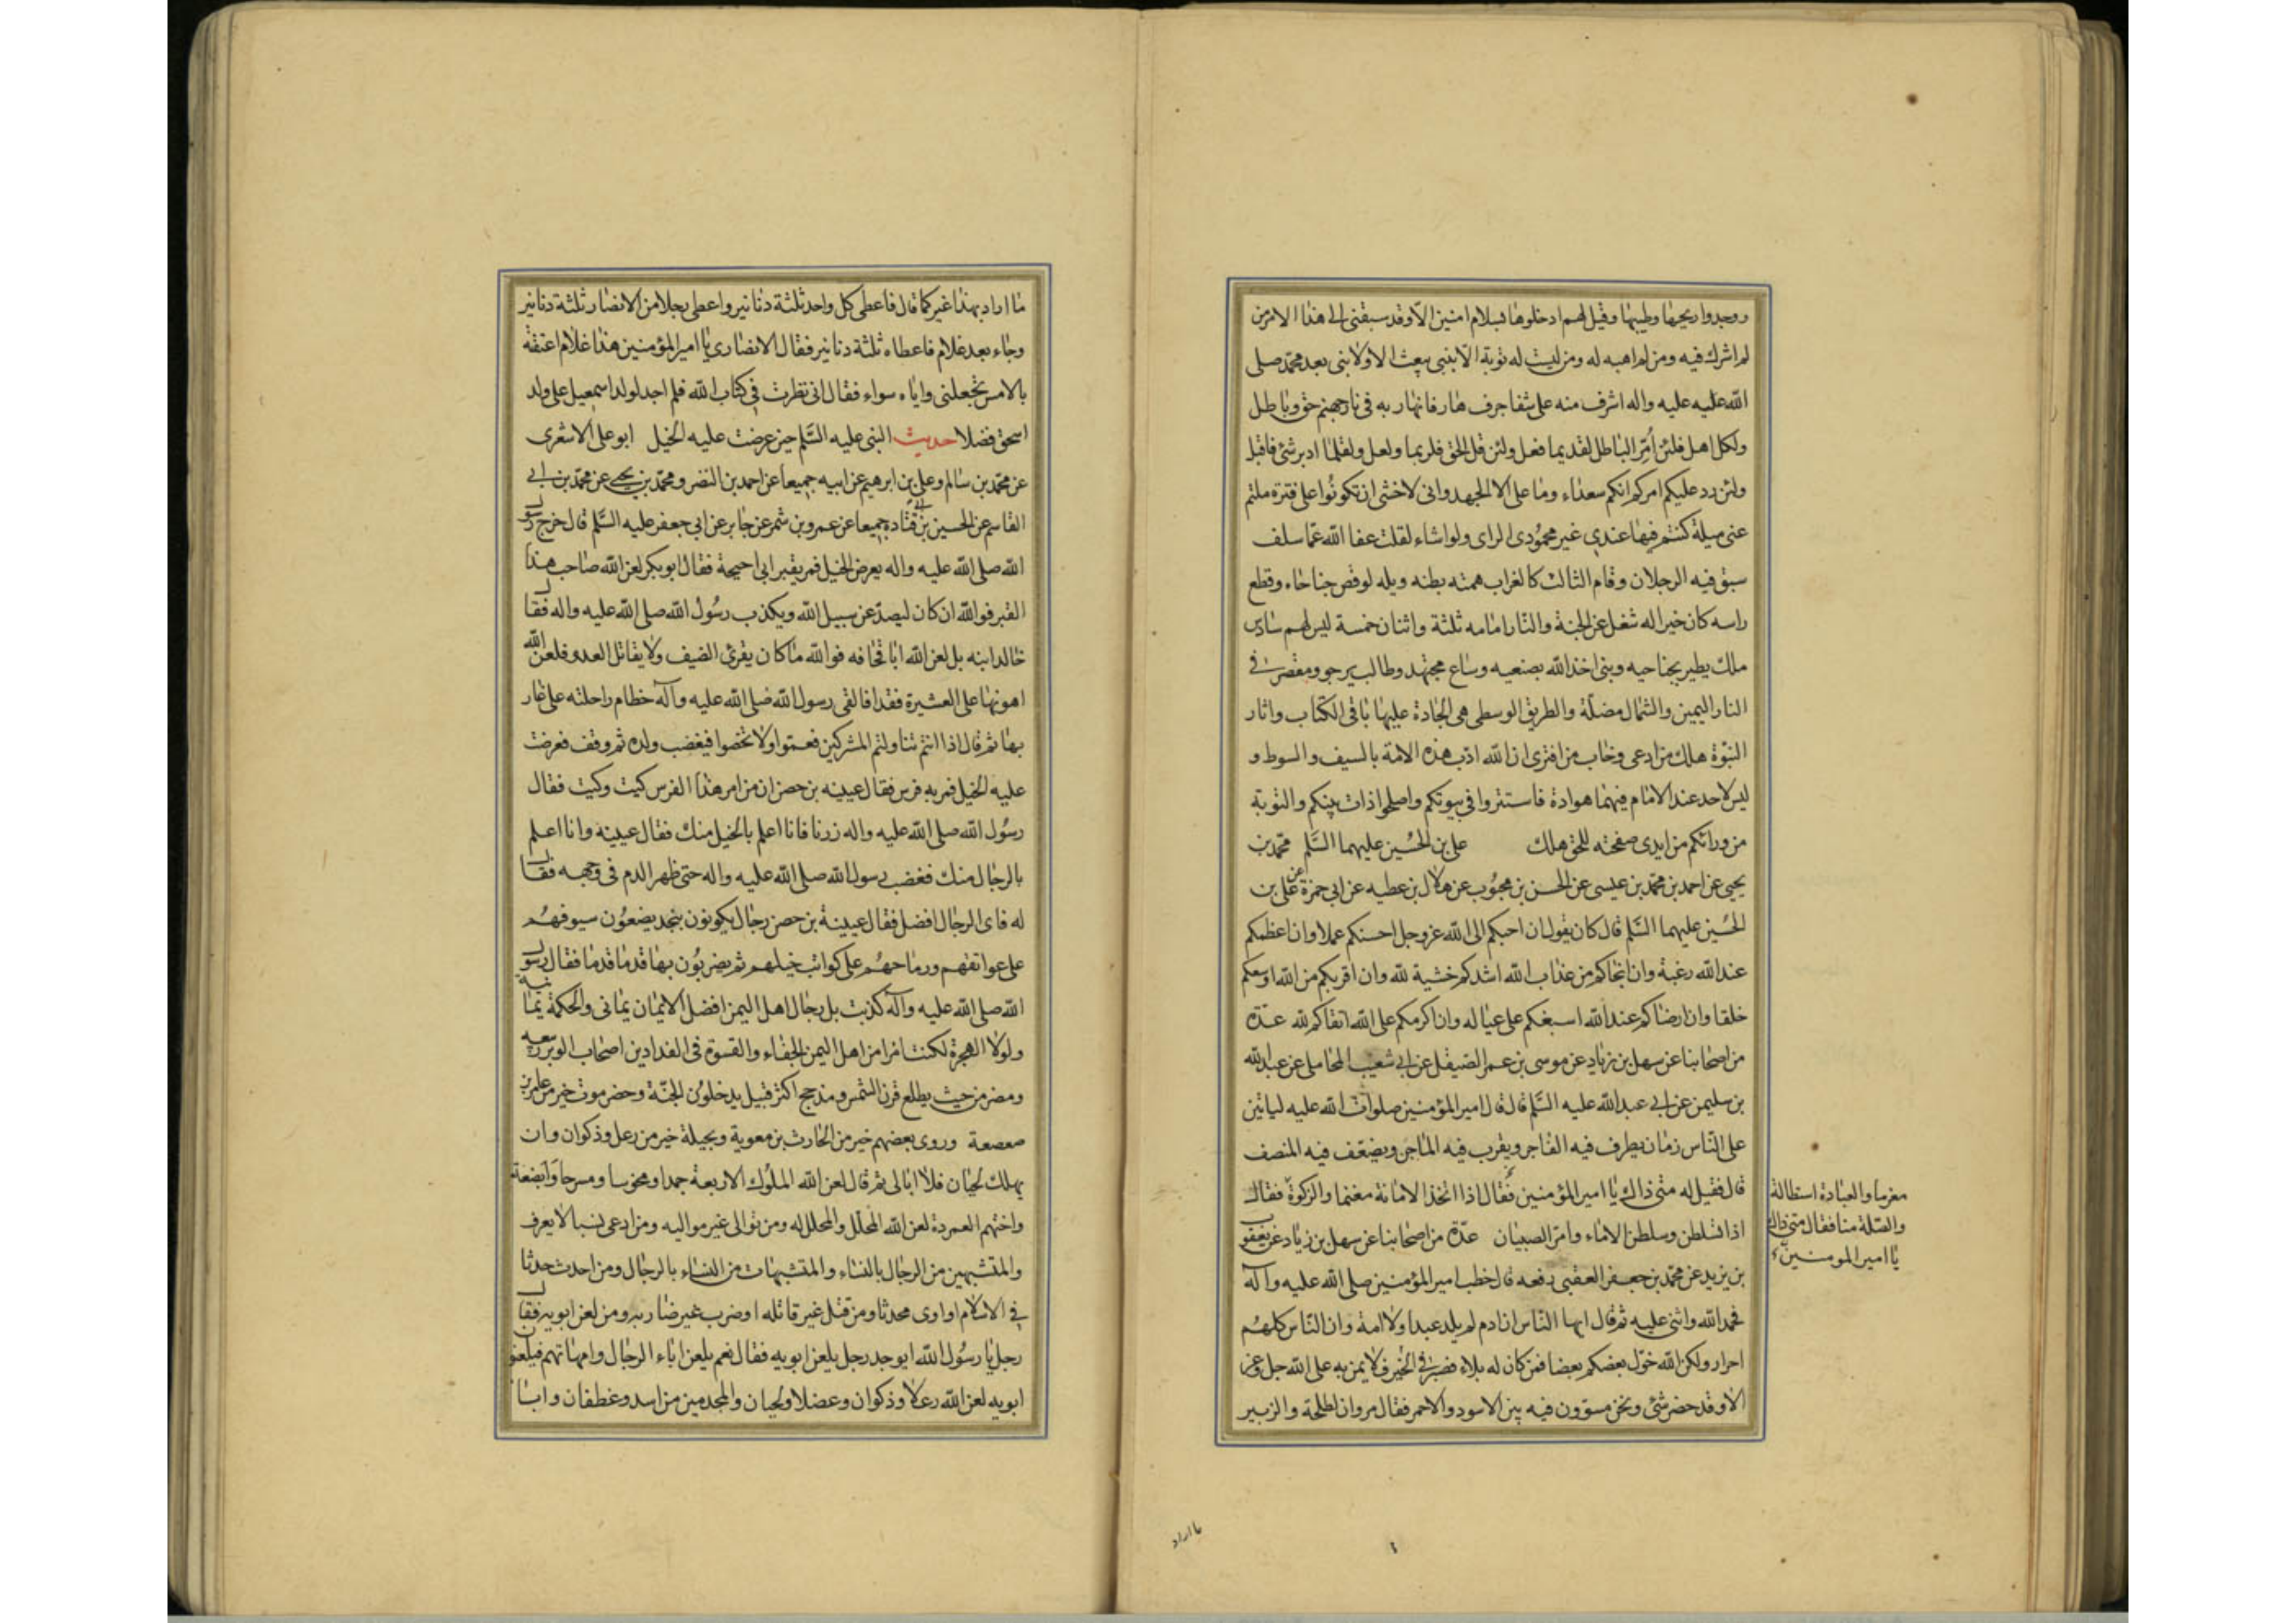 ووجدوا ريحها وطيبها وقيل لهم ادخلوها بسلام امنين الا وقد سبقنى الى هذا الامر من
لم اشركه فيه ومن لم اهبه له ومن ليست له توبة الا بنبى يبعث الا ولا نبى بعد محمد صلى
الله عليه عليه واله اشرف منه على شفا جرف هار فانهار به فى نار جهنم حق وباطل
ولكل اهل فلئن أمّر الباطل لقديما فعل ولئن قل الحق فلربما ولعل ولقلما ادبر شئ فاقبل
ولئن رد عليكم امركم انكم سعداء وما على الا الجهد وانى لاخشى ان تكونوا على فترة ملتم
عنى ميلة كنتم فيها عندى غير محمودى الراى ولو اشاء لقلت عفا الله عما سلف
سبق فيه الرجلان وقام الثالث كالغراب همته بطنه ويله لو قص جناحاه وقطع
راسه كان خيرا له شغل عن الجنة والنار امامه ثلثة واثنان خمسة ليس لهم سادس
ملك يطير بجناحيه ونبى اخذ الله بضبعيه وساع مجتهد وطالب يرجو ومقصر فى
النار اليمين والشمال مضلة والطريق الوسطى هى الجادة عليها باقى الكتاب واثار
النبوة هلك من ادعى وخاب من افترى ان الله ادب هذه الامة بالسيف والسوط و
ليس لاحد عند الامام فيهما هوادة فاستتروا فى بيوتكم واصلحوا ذات بينكم والتوبة
من ورائكم من ابدى صفحته للحق هلك على بن الحسين عليهما السلم محمد بن
يحيى عن احمد بن محمد بن عيسى عن الحسن بن محبوب عن هلال بن عطيه عن ابى حمزة عن على بن
الحسين عليهما السلم قال كان يقول ان احبكم الى الله عز وجل احسنكم عملا وان اعظمكم
عند الله رغبة وان انجاكم من عذاب الله اشدكم خشية لله وان اقربكم من الله اوسعكم
خلقا وان ارضاكم عند الله اسبغكم على عياله وان اكرمكم على الله اتقاكم لله عدة
من اصحابنا عن سهل بن زياد عن موسى بن عمر الصيقل عن ابى شعيب المحاملى عن عبد الله
بن سليمن عن ابى عبد الله عليه السلم قال قال امير المؤمنين صلوات الله عليه لياتين
على الناس زمان يطرف فيه الفاجر ويقرب فيه الماجن ويضعف فيه المنصف
قال فقيل له متى ذاك يا امير المؤمنين فقال اذا اتخذ الامانة مغنما والزكوة فقال
مغرما والعبادة استطالة
والصلة منا فقال متى ذاك
يا امير المومنين
اذا تسلطن وسلطن الاماء وامر الصبيان عدة من اصحابنا عن سهل بن زياد عن يعقوب
بن يزيد عن محمد بن جعفر العقبى رفعه قال خطب امير المؤمنين صلى الله عليه وآله
فحمد الله واثنى عليه ثم قال ايها الناس ان ادم لم يلد عبدا ولا امة وان الناس كلهم
احرار ولكن الله خول بعضكم بعضا فمن كان له بلاء فصبر فى الخير فلا يمن به على الله جل وعز
الا وقد حضر شئ ونحن مسوون فيه بين الاسود والاحمر فقال مروان لطلحة والزبير
ما اراد
ما اراد بهذا غيركما قال فاعطى كل واحد ثلثة دنانير واعطى رجلا من الانصار ثلثة دنانير
وجاء بعد غلام فاعطاه ثلثة دنانير فقال الانصارى يا امير المؤمنين هذا غلام اعتقته
بالامس تجعلنى واياه سواء فقال انى نظرت فى كتاب الله فلم اجد لولد اسمعيل على ولد
اسحق فضلا حديث النبى عليه السلم حين عرضت عليه الخيل ابو على الاشعرى
عن محمد بن سالم وعلى بن ابرهيم عن ابيه جميعا عن احمد بن النضر ومحمد بن يحيى عن محمد بن ابى
القاسم عن الحسين بن ابى قتاده جميعا عن عمرو بن شمر عن جابر عن ابى جعفر عليه السلم قال خرج رسول
الله صلى الله عليه واله يعرض الخيل فمر بقبر ابى احيحة فقال ابو بكر لعن الله صاحب هذا
القبر فوالله ان كان ليصد عن سبيل الله ويكذب رسول الله صلى الله عليه واله فقال
خالد ابنه بل لعن الله ابا قحافه فوالله ما كان يقرئ الضيف ولا يقاتل العدو فلعن الله
اهونهما على العشيرة فقدا فالقى رسول الله صلى الله عليه وآله خطام راحلته على غار
بها ثم قال اذا انتم تناولتم المشركين فعموا ولا تخصوا فيغضب ولده ثم وقف فعرضت
عليه الخيل فمر به فرس فقال عيينه بن حصن ان من امر هذا الفرس كيت وكيت فقال
رسول الله صلى الله عليه واله ذرنا فانا اعلم بالخيل منك فقال عيينة وانا اعلم
بالرجال منك فغضب رسول الله صلى الله عليه واله حتى ظهر الدم فى وجهه فقال
له فاى الرجال افضل فقال عيينة بن حصن رجال يكونون بنجد يضعون سيوفهم
على عواتقهم ورماحهم على كواثب خيلهم ثم يضربون بها قدما قدما فقال رسول
الله صلى الله عليه وآله كذبت بل رجال اهل اليمن افضل الايمان يمانى والحكمة يمانية
ولولا الهجرة لكنت امرا من اهل اليمن الجفاء والقسوة فى الفدادين اصحاب الوبر ربيعه
ومضر من حيث يطلع قرن الشمس ومذحج اكثر قبيل يدخلون الجنة وحضرموت خير من عامر بن
صعصعة وروى بعضهم خير من الحارث بن معوية وبجيلة خير من رعل وذكوان وان
يهلك لحيان فلا ابالى ثم قال لعن الله الملوك الاربعة جمدا ومخوسا ومسرحا وابضعة
واختهم العمردة لعن الله المحلل والمحلل له ومن توالى غير مواليه ومن ادعى نسبا لا يعرف
والمتشبهين من الرجال بالنساء والمتشبهات من النساء بالرجال ومن احدث حدثا
فى الاسلام او اوى محدثا ومن قتل غير قاتله او ضرب غير ضاربه ومن لعن ابويه فقال
رجل يا رسول الله ايوجد رجل يلعن ابويه فقال نعم يلعن اباء الرجال وامهاتهم فيلعنون
ابويه لعن الله رعلا وذكوان وعضلا ولحيان والمجذمين من اسد وغطفان وابا